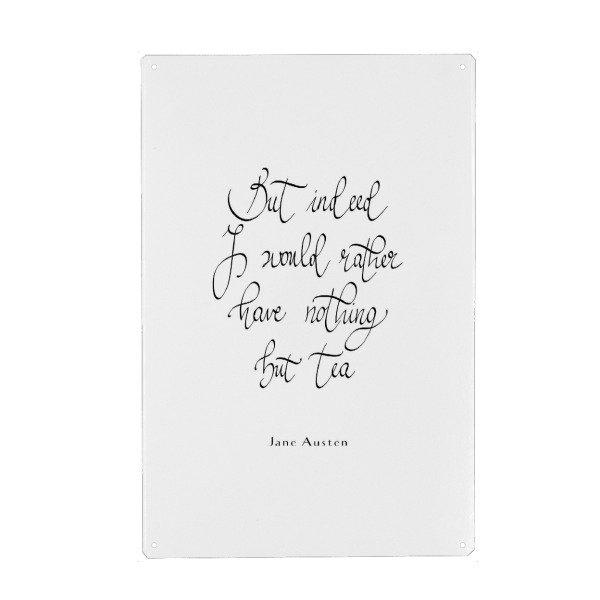 But indeed
I would rather
have nothing
but tea
Jane Austen